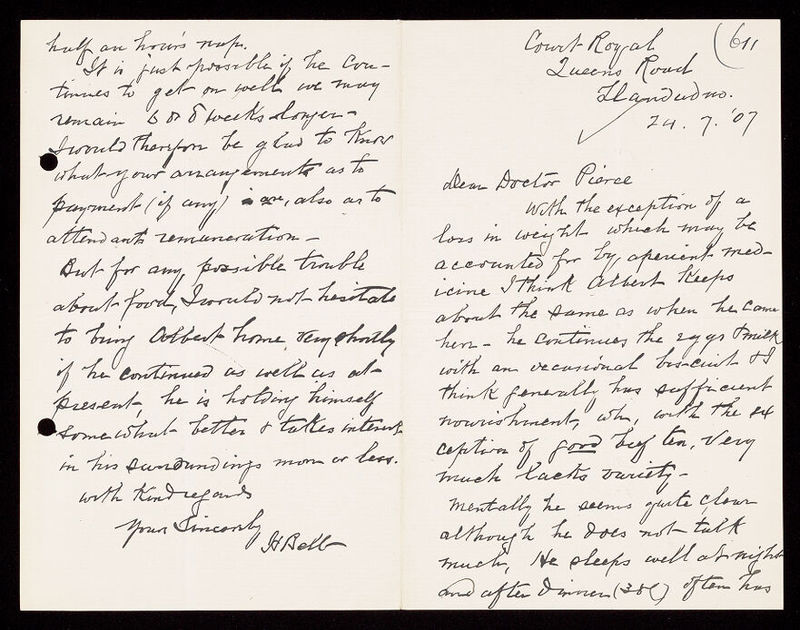 (611
Court Royal
Queens Road
Llandudno.
24. 7. '07
Dear Doctor Pierce
With the exception of a
loss in weight which may be
accounted for by aperient med-
icine I think Albert keeps
about the same as when he came
here - he continues the eggs & milk
with an occasional biscuit & I
think generally has sufficient
nourishment, with the ex
ception of good beef tea, very
much lacks variety -
Mentally he seems quite clear
although he does not talk
much, He sleeps well at night
and after dinner often has
half an hour's nap.
It is just possible if he con-
tinues to get on well we may
remain 6 or 8 weeks longer -
I would therefore be glad to know
what your arrangements as to
payment (if any) are, also as to
attendants remuneration -
But for any possible trouble
about food, I would not hesitate
to bring Albert home very shortly
if he continued as well as at
present, he is holding himself
somewhat better & takes interest
in his surroundings more or less.
with kind regards
Yours Sincerely
H Bell